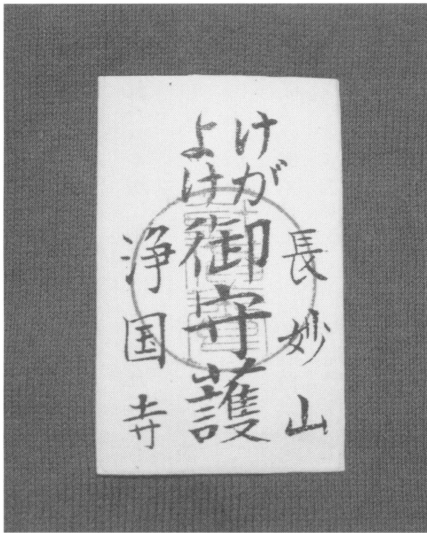 長妙山
けが
よけ
御守護
浄国寺